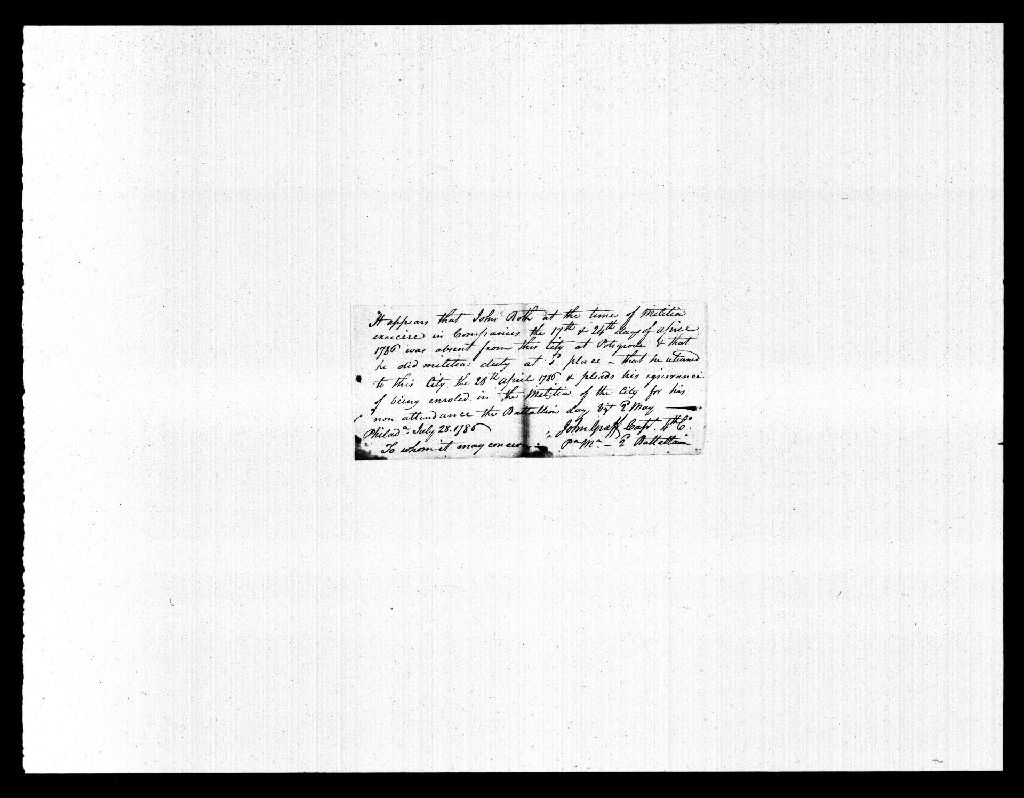 It appears that John Roth at the time of Militia
exercise in Companies the 17th & 24th days of April
1786 was absent from this City at Potsgrove & that
he did militia: duty at sd place - that he returned
to this City the 28th April 1786 & pleads his ignorance
of being enroled in the Militia of the City for his
non attendance the Battallion day 2d May
Philada. July 28. 1786 John Graff Capt. 6th Co.
To whom it may concern Pa Ma - 2d Battallion